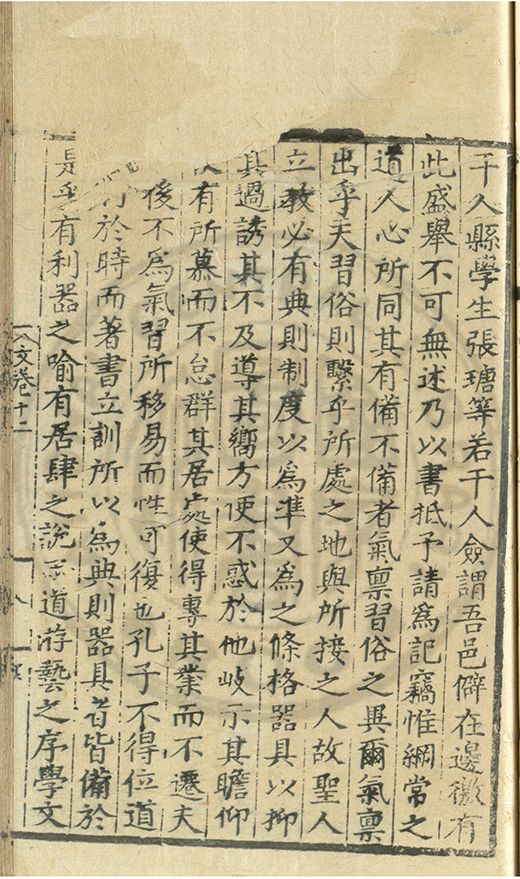 干人縣學生張瑭等若干人僉謂吾邑僻在邊徼有
此盛舉不可無述乃以書抵予請爲記竊惟綱常之
道人心所同其有備不備者氣禀習俗之異爾氣禀
出乎天習俗則繫乎所處之地與所接之人故聖人
立教必有典則制度以爲準又爲之條格器具以抑
其過誘其不及導其嚮方使不惑於他岐示其瞻仰
有所慕而不怠群其居處使得專其業而不遷夫
後不爲氣習所移易而性可復也孔子不得位道
於時而著書立訓所以爲典則器具者皆備於
是乎有利器之喻有居肆之說志道游藝之序學文
文卷十二
八